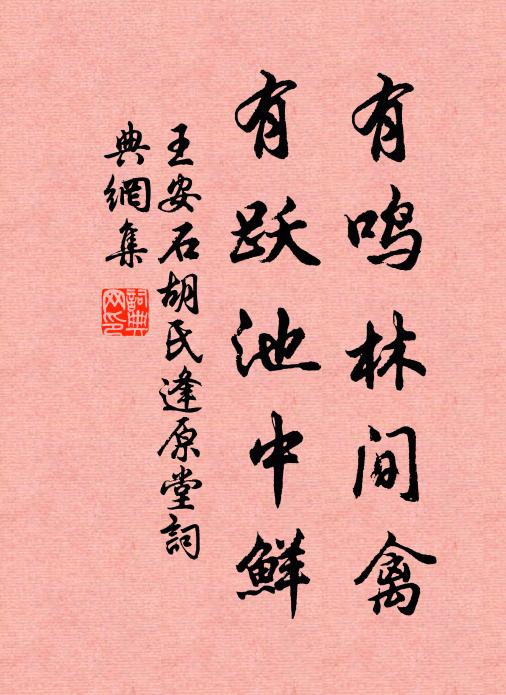 有鸣林间禽
有跃池中鲜
王安石胡氏逢原堂詞
典網集
詞典
网印